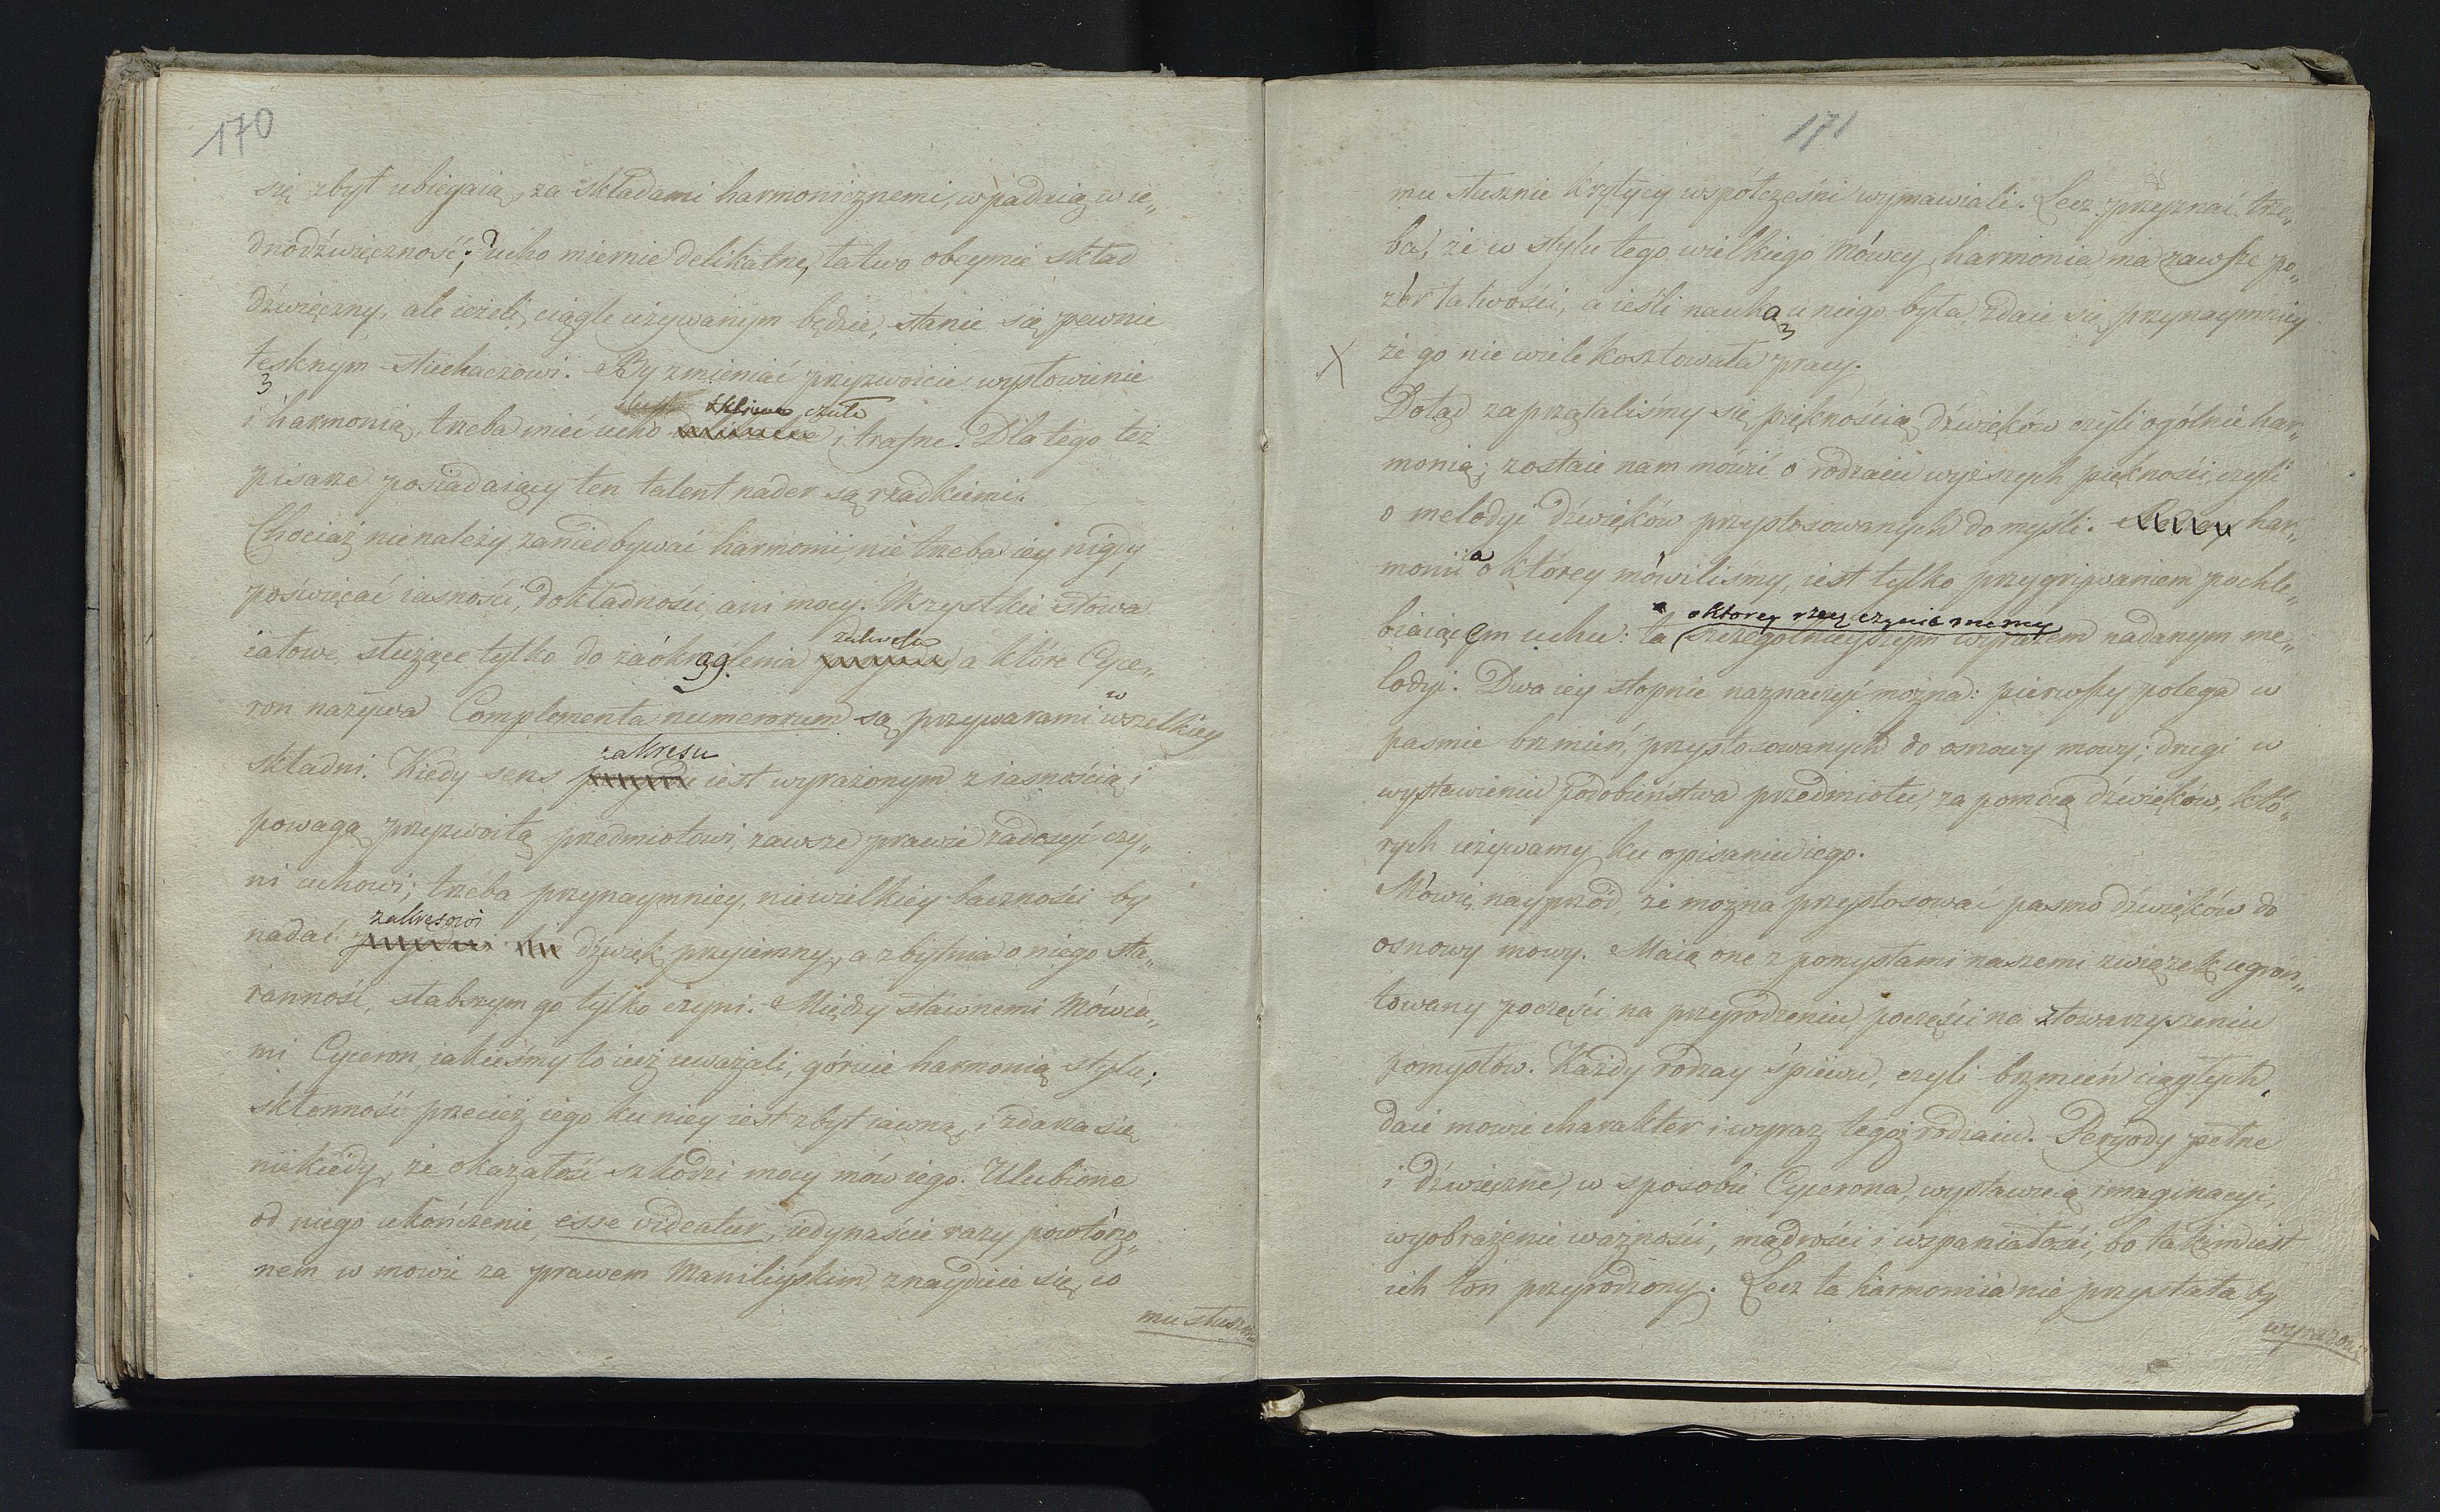 170
się zbyt ubiegaią, za składami harmonicznemi, wpadaią w ie„
dnodźwięczność; ucho miernie delikatne, łatwo obeymie skład
dźwięczny, ale ieżeli, ciągle używanym będzie, stanie się pewnie
tesknym słuchaczowi. By zmieniać przyzwoicie wysłowienie
czułe
i harmonią, trzeba mieć ucho i trafne. Dla tego też
pisarze posiadaiący ten talent nader są rzadkiemi.
Chociaż nie należy zaniedbywać harmonii, nie trzeba iey nigdy
poświęcać iasności, dokładności ani mocy. Wszystkie słowa
zakresu
iałowe, służące tylko do zaokrąglenia , a które Cyce„
ron nazywa Complementa numerorum są przywarami w wszelkiey
zakresu
składni. Kiedy sens iest wyrażonym z iasnością i
powagą przyzwoitą przedmiotowi, zawsze prawie zadosyć czy„
ni uchowi; trzeba przynaymniey, niewielkiey baczności by
zakresowi
nadać dźwięk przyiemny, a zbytnia o niego sta„
ranność, słabszym go tylko czyni. Między sławnemi Mówca„
mi Cyceron, iakieśmy to iuż uważali, góruie harmonią stylu;
skłonność przecież iego ku niey iest zbyt iawną, i zdarza się
niekiedy, że okazałość szkodzi mocy mów iego. Ulubione
od niego ukończenie, esse videatur, iedynaście razy powtórzo„
nem w mowie za prawem Maniliyskim, znayduie się, co
mu słusznie
171
mu słusznie krytycy współcześni wymawiali. Lecz przyznać trze„
ba, że w stylu tego wielkiego Mówcy, harmonia ma zawsze po„
zór łatwości, a ieśli nauką u niego była, zdaie się przynaymniey
X że go nie wiele kosztowała pracy.
Dotąd zaprzątaliśmy się pięknością dźwięków czyli ogólnie har„
monią; zostaie nam mówić o rodzaiu wyższych piękności, czyli
o melodyi dźwięków przystosowanych do myśli. har„
monia o którey mówiliśmy, iest tylko przygrywaniem pochle„
o którey rzecz czynić mamy
biaiącem uchu: ta szczególnieyszym wyrazem nadanym me„
lodyi. Dwa iey stopnie naznaczyć można: pierwszy polega w
pasmie brzmień, przystosowanych do osnowy mowy; drugi w
wystawieniu podobieństwa przedmiotu, za pomocą dźwięków, któ„
rych używamy ku opisaniu iego.
Mówię nayprzód, że można przystosować pasmo dźwięków do
osnowy mowy. Maią one z pomysłami naszemi związek ugron„
towany poczęści na przyrodzeniu poczęści na stowarzyszeniu
pomysłów. Każdy rodzay śpiewu, czyli brzmień ciągłych,
daie mowie charakter i wyraz tegoż rodzaiu. Peryody pełne
i dźwięczne, w sposobie Cycerona, wystawuią imaginacyi,
wyobrażenie ważności, mądrości i wspaniałości, bo takim iest
ich ton przyrodzony. Lecz ta harmonia nie przystała by